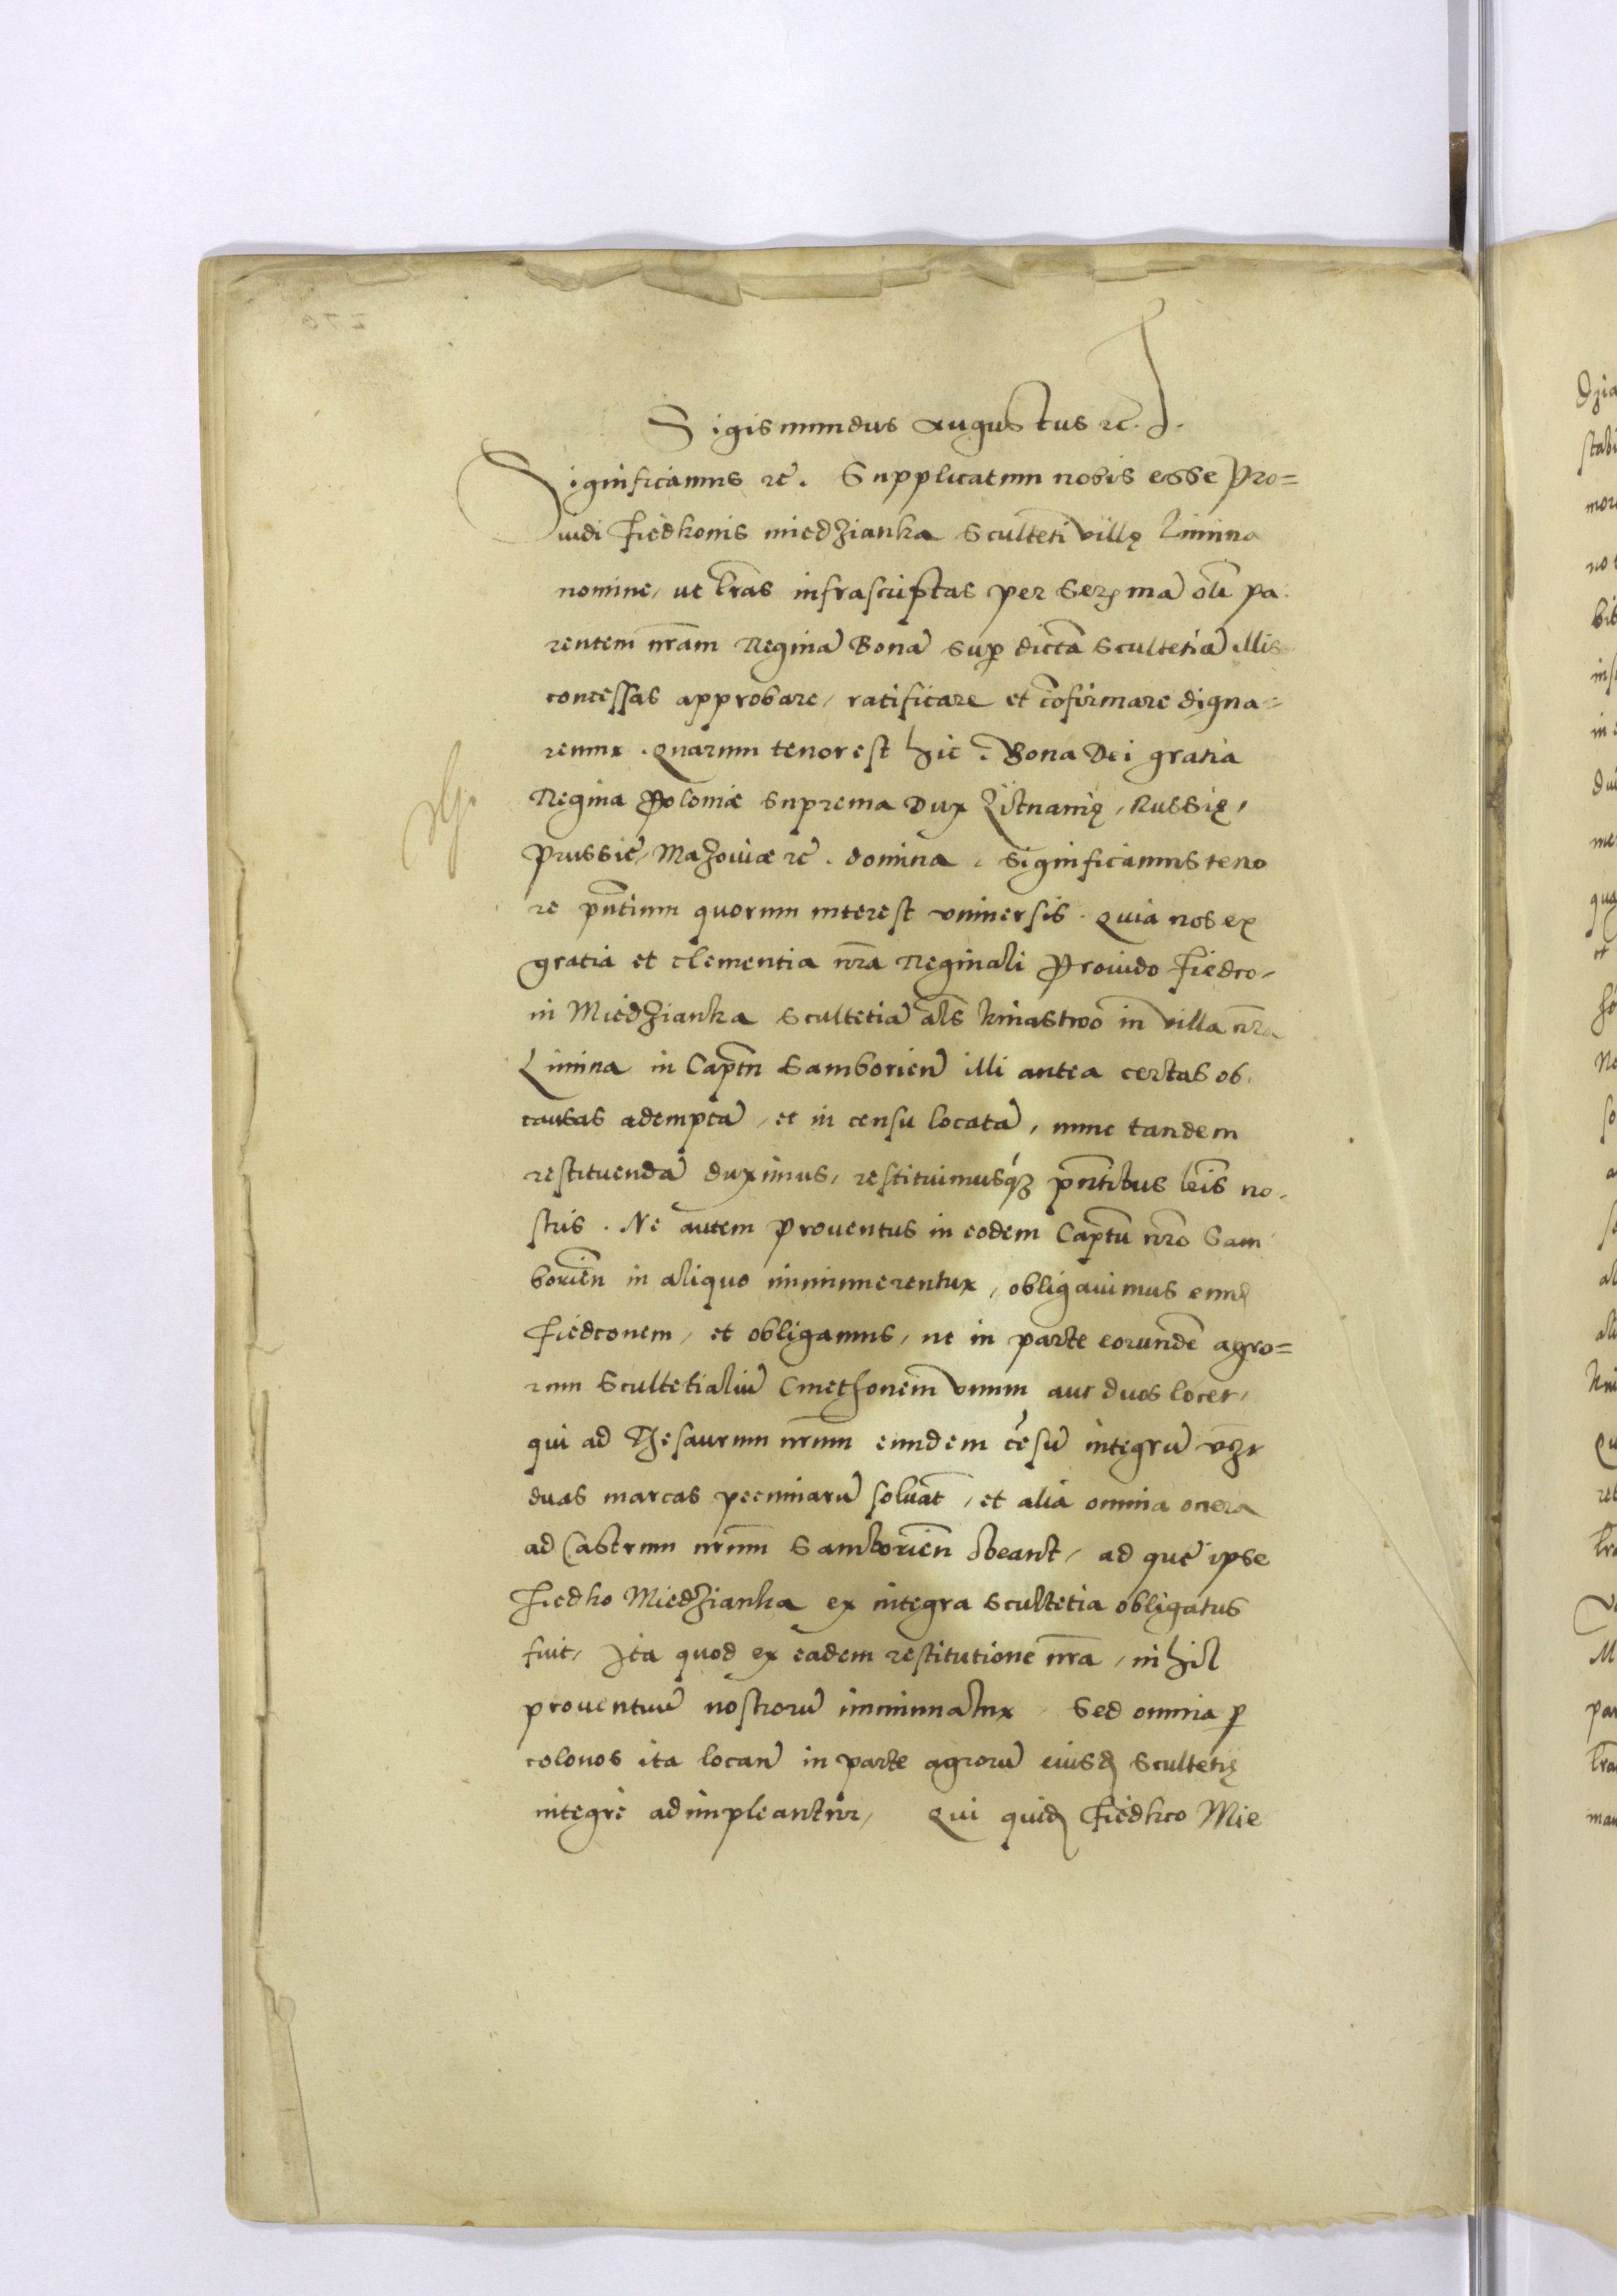 Sigismundus Augustus rc̄.
Significamus rc̄. Supplicatum nobis esse Pro=
uidi Fiedkonis miedzianka Sculteti villę Linina
nomine, ut l̄ras infrascriptas per Ser. mā olī pa
rentem nr̄am Reginā Bonā Sup dictā Scultetiā illis
concessas approbare, ratificare et cōfirmare digna=
remur. Quarum tenor est hic. Bona Dei gratia
Regina Poloniæ Suprema Dux Litnanię, Russię,
Prussie, Mazouiæ rc̄. domina. Significamus teno
re pn̄tium quorum interest vniuersis. Quia nos ex
gratia et clementia nr̄a Reginali Prouido Fiedco-
ni Miedzianka Scultetiā al̄s kniastwo in villa nr̄a
Linina in Captn̄ Samborien̄ illi antea certas ob
causas ademptā, et in censu locatā, nunc tandem
restituendā duximus, restituimusq3 pn̄tibus lr̄is no-
stris. Ne autem Prouentus in eodem Captū nr̄o Sam
borien̄ in aliquo imminuerentur, obligauimus eund
Fiedconem, et obligamus, ut in parte eorundē agro=
rum Scultetialiū Cmethonem vnum aut duos locet,
qui ad Thesaurum nr̄um eundem cēsū integrū vzt
duas marcas pecuniarū soluāt, et alia omnia onera
ad Castrum nr̄um Samborien̄ obeant, ad quē ipse
Fiedko Miedzianka ex integra Scultetia obligatus
fuit, Ita quod ex eadem restitutione nr̄a, nihil
prouentuū nostrorū imminuatur, Sed omnia p
colonos ita locan̄ in parte agrorū eiusd Scultetię
integrè adimpleantur, Qui quid Fiedkco Mie